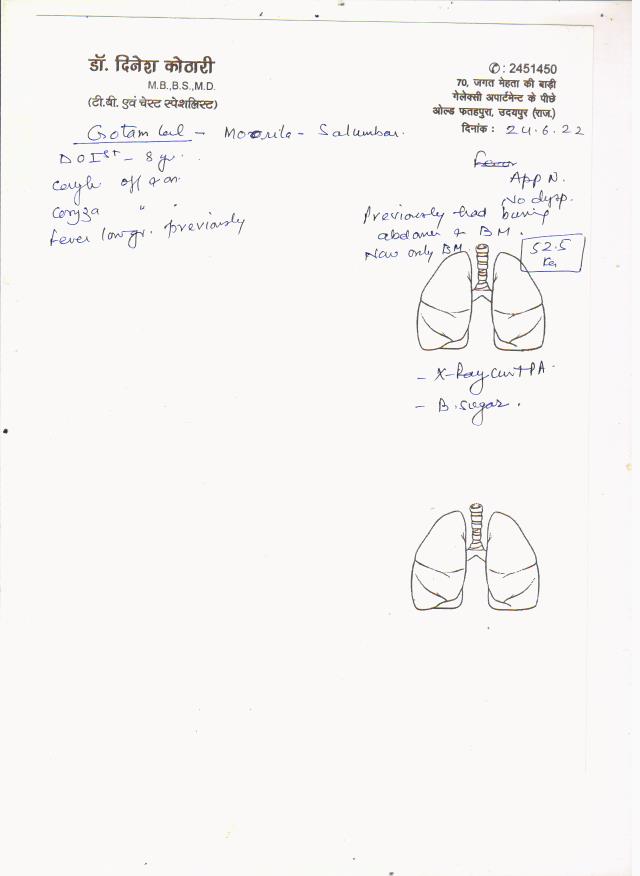 डॉ. दिनेश कोठारी
M.B.,B.S.,M.D.
(टी.बी. एवं चेस्ट स्पेशलिस्ट)
✆: 2451450
70, जगत मेहता की बाड़ी
गेलेक्सी अपार्टमेन्ट के पीछे
ओल्ड फतहपुरा, उदयपुर (राज.)
दिनांक : 24.6.22
Gotam Lal - - Salumbar.
DOIst - 8 yr.
Cough off & on
Coryza " "
Fever low gr. previously
Fever
App N.
No dysp.
Previously had burning
abdomen & BM.
Now only BM.
52.5
Kg
- X-Ray Chest PA.
- B. Sugar.